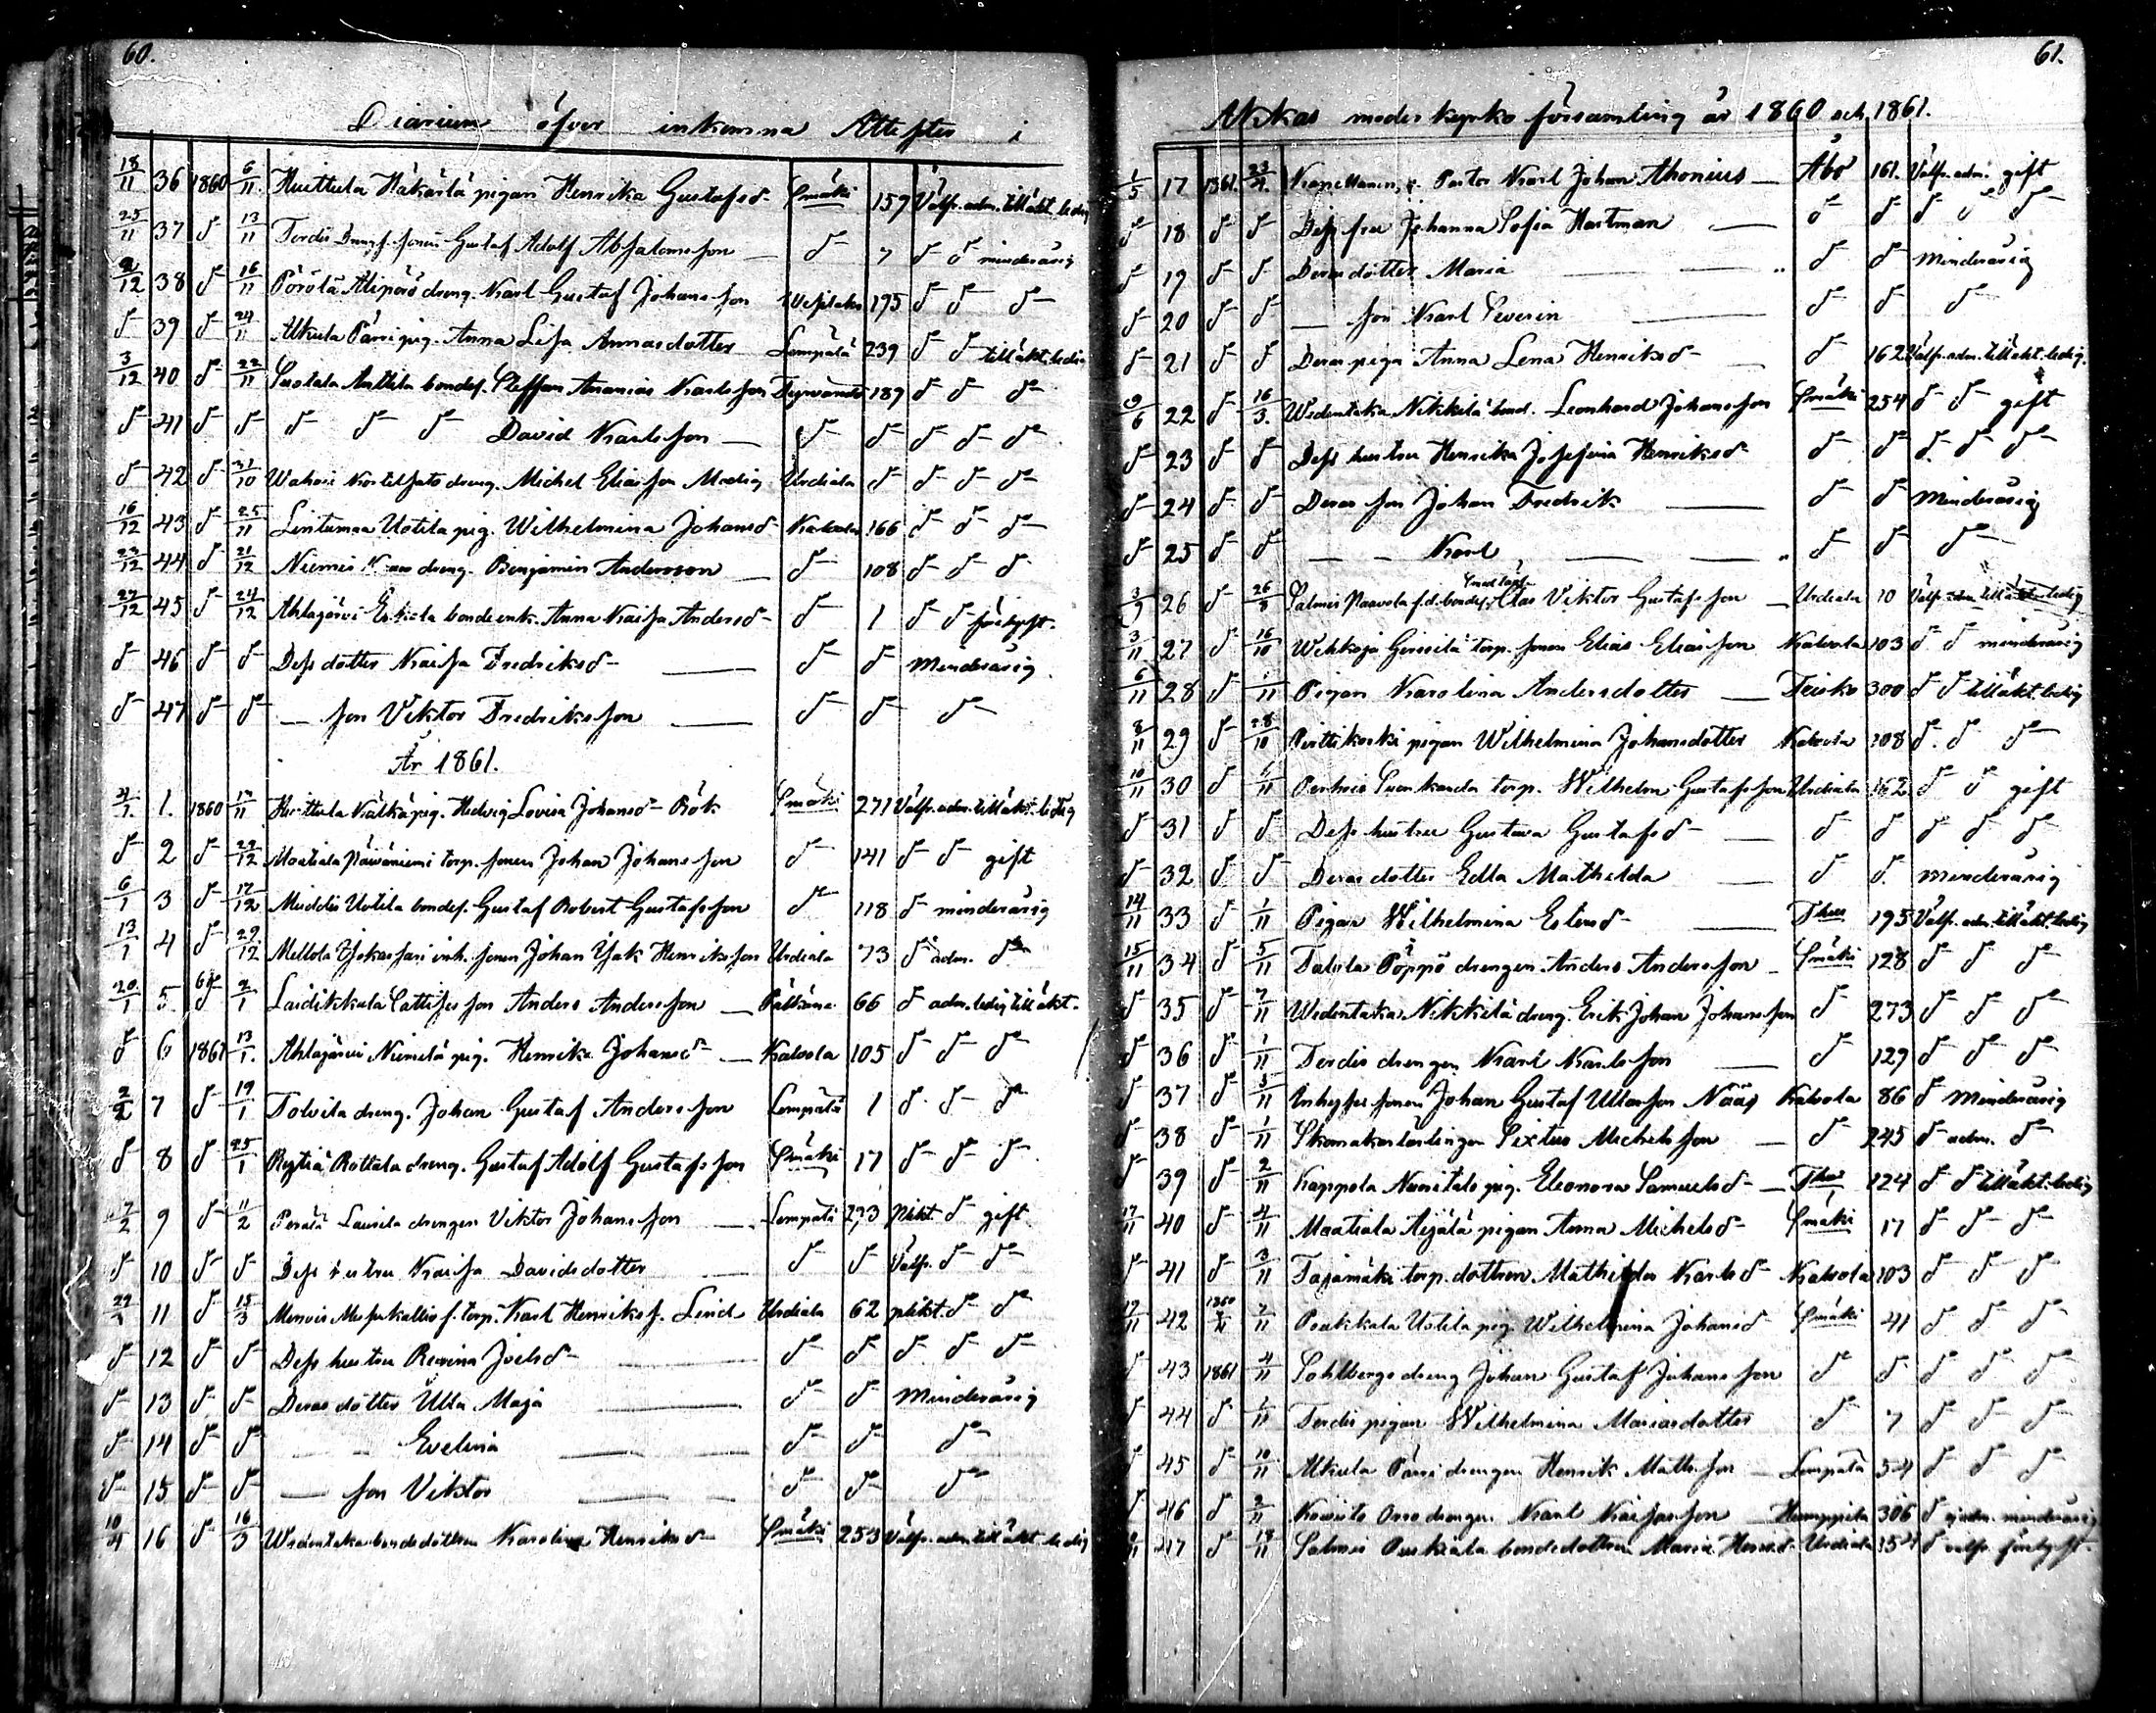 60.
Diarium öfver inkomna Attester i
18/11 36 1860 6/11 Huittula Häkärlä pigan Henrika Gustafsd- Smäki 159 Välfr. adm. till äkt. ledig
25/11 37 d- 13/11 Terdis sonen Gustaf Adolf Absalomsson d- 7 d- d- minderårig
2/12 38 d- 16/11 Pörölä Alipörö dreng. Karl Gustaf Johansson Vesilaks 195 d- d- d-
d- 39 d- 24/11 Alkula Pärri pig. Anna Lisa Annasdotter Lempälä 239 d- d- till äkt. ledig
3/12 40 d- 22/11 Sustala Anttila bondes. Steffan Ananias Karlsson Tyrvändö 189 d- d- d-
d- 41 d- d- d- d- d- David Karlsson d- d- d- d- d-
d- 42 d- 31/10 Wahoi dreng. Michel Eliasson Modig Urdiala d- d- d- d-
16/12 43 d- 25/11 Lintumaa Uotila pig. Wilhelmina Johansd- Kalvola 166 d- d- d-
23/12 44 d- 21/12 Niemis dreng. Benjamin Andersson d- 108 d- d- d-
27/12 45 d- 24/12 Ahlajärvi Eskola bondeenk. Anna Kaisa Andersd- d- 1 d- d- förlyft.
d- 46 d- d- Dess dotter Kaisa Fredriksd- d- d- Minderårig
d- 47 d- d- — son Viktor Fredriksson d- d- d-
År 1861.
4/1 1. 1860 17/11 Huittula Kälkä pig. Hedvig Lovisa Johansd- Rök Smäki 271 Välfr. adm. till äkt. ledig
d- 2 d- 22/12 Maatiala Päiväniemi torp. sonen Johan Johansson d- 141 d- d- gift
6/1 3 d- 17/12 Meiddis Uotila bondes. Gustaf Robert Gustafsson d- 118 d- minderårig
13/1 4 d- 29/12 Mellola inh. sonen Johan Isak Henriksson Urdiala 73 d- adm. d-
20/1 5 61 d- 2/1 Laidikkala son Anders Andersson Pälkäne 66 d- adm. ledig till äkt.
d- 6 1861 13/1. Ahlajärvi Niemelä pig. Henrika Johansd- Kalvola 105 d- d- d-
2/2 7 d- 19/1 Tolvila dreng. Johan Gustaf Andersson Lempälä 1 d- d- d-
d- 8 d- 25/1 Rottala dreng. Gustaf Adolf Gustafsson Smäki 17 d- d- d-
17/2 9 d- 11/2 Perälä Laurila drengen Viktor Johansson Lempälä 273 Nikt. d- gift
d- 10 d- d- Dess hustru Kaisa Davidsdotter d- d- Välfr. d- d-
11 d- 15/3 Menois f. torp. Karl Henrikss. Lind Urdiala 62 nikt. d- d-
d- 12 d- d- Dess hustru Regina Joelsd- d- d- d- d- d-
d- 13 d- d- Deras dotter Ulla Maja d- d- Minderårig
d- 14 d- d- — — Evelina d- d- d-
d- 15 d- d- — son Viktor d- d- d-
10/4 16 d- 16/3 Widentaka bondedottren Karolina Henriksd- Smäki 253 Välfr. adm. till äkt. ledig
61.
Akkas moder kyrko församling år 1860 och 1861.
1/5 17 1861. 23/4. Kapellanen, Pastor Karl Johan Ahonius Åbo 161. Välfr. adm. gift
d- 18 d- d- Dess fru Johanna Sofia Hartman d- d- d- d- d-
d- 19 d- d- Deras dotter Maria d- d- Minderårig
d- 20 d- d- — son Karl Severin d- d- d-
d- 21 d- d- Deras piga Anna Lena Henriksd- d- 162 Välfr. adm. till äkt. ledig.
9/6 22 d- 16/3. Widentaka Nikkilä bond. Leonhard Johansson Smäki 254 d- d- gift
d- 23 d- d- Dess hustru Henrika Josefina Henriksd- d- d- d- d- d-
d- 24 d- d- Deras son Johan Fredrik d- d- Minderårig
d- 25 d- d- — — Karl d- d- d-
3/9 26 d- 26/8 Salmis Paavola f.d. bondes. Clas Viktor Gustafsson Urdiala 10 Välfr. adm. till äkt. ledig
3/11 27 d- 16/10 torp. sonen Elias Eliasson Kalvola 103 d- d- minderårig
6/11 28 d- 1/11 Pigan Karolina Andersdotter Teisko 300 d- d- till äkt. ledig
8/11 29 d- 28/10 Pirttikoski pigan Wilhelmina Johansdotter Kalvola 108 d- d- d-
10/11 30 d- 6/11 Penhois torp. Wilhelm Gustafsson Urdiala 162 d- d- gift
d- 31 d- d- Dess hustru Gustava Gustafsd- d- d- d- d- d-
d- 32 d- d- Deras dotter Edla Mathilda d- d. minderårig
14/11 33 d- 1/11 Pigan Wilhelmina Estersd- Thus 195 Välfr. adm. till äkt. ledig
15/11 34 d- 5/11 Tolvila Pöppö drengen Anders Andersson Smäki 128 d- d- d-
d- 35 d- 7/11 Widentaka Nikkilä dreng. Erik Johan Johansson d- 273 d- d- d-
d- 36 d- 1/11 Terdis drengen Karl Karlsson d- 129 d- d- d-
d- 37 d- 5/11 Inhyses sonen Johan Gustaf Ullasson Nääs Kalvola 86 d- Minderårig
d- 38 d- 1/11 Skomakarlärlingen Sixtus Michelsson d- 245 d- adm. d-
d- 39 d- 2/11 Kappola Nuonitalo pig. Eleonora Samuelsd- Thus 124 d- d- till äkt. ledig
17/11 40 d- 4/11 Maatiala Äijälä pigan Anna Michelsd- Smäki 17 d- d- d-
d- 41 d- 3/11 Tajamäki torp. dottren Mathilda Karlsd- Kalvola 103 d- d- d-
19/11 42 1860 7/11 Raakkala Uotila pig. Wilhelmina Johansd- Smäki 41 d- d- d-
d- 43 1861 4/11 Sahlbergs dreng Johan Gustaf Johansson d- d- d- d- d-
d- 44 d- 1/11 Terdis pigan Wilhelmina Mariasdotter d- 7 d- d- d-
d- 45 d- 10/11 Alkula Pärri drengen Henrik Mattsson Lempälä 34 d- d- d-
d- 46 d- 2/11 Koniito drengen Karl Kaisasson Humppila 306 d- minderårig
47 d- 18/11 Salmis bondedottren Maria Henrd- Urdiala 154 d- välfr. förlyft.